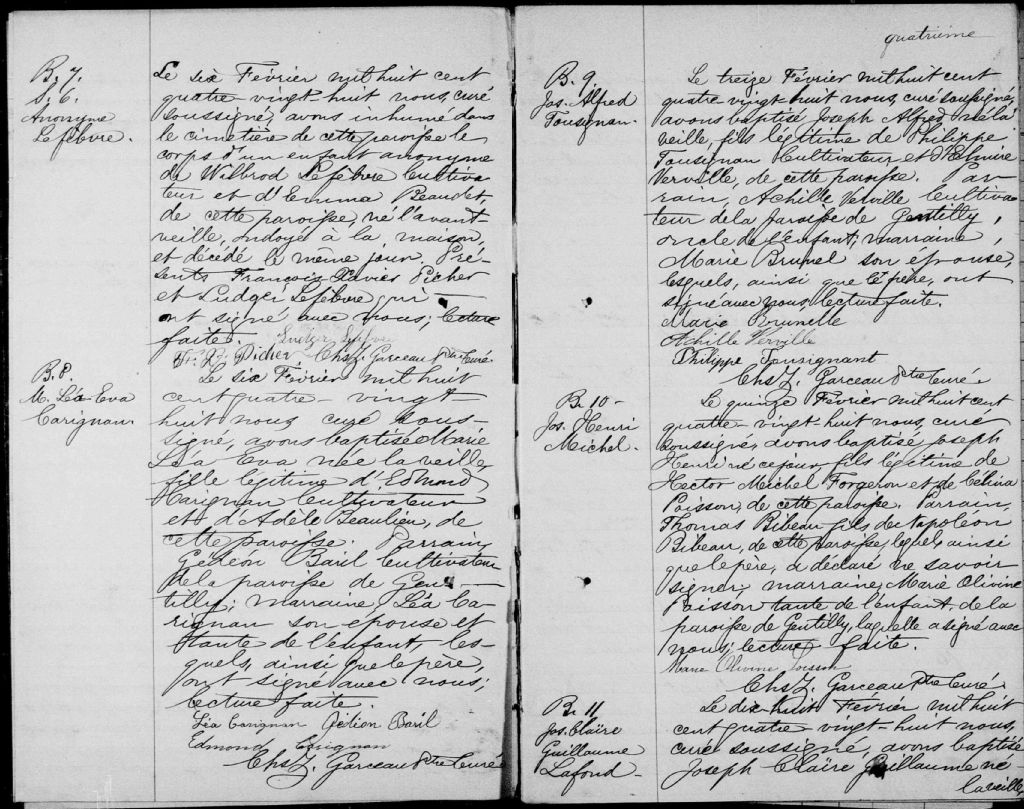 B. 7.
S. 6.
Anonyme
Lefebvre.
Le six Février mil huit cent
quatre-vingt-huit nous, curé
soussigné, avons inhumé dans
le cimetière de cette paroisse le
corps d'un enfant anonyme
de Wilbrod Lefebvre Cultiva
teur et d'Emma Beaudet,
de cette paroisse, né l'avant
veille, ondoyé à la maison,
et décédé le même jour. Pré-
sents François Xavier Picher
et Ludger Lefebvre qui
ont signé avec nous; lecture
faite. Ludger Lefebvre
F. X. Picher. Chs Z. Garceau Ptre Curé.
B. 8.
M. Léa Eva
Carignan
Le six Février mil huit
cent quatre-vingt
huit nous curé sous-
signé, avons baptisé Marie
Léa Eva née la veille,
fille légitime d'Edmond
Carignan Cultivateur
et d'Adèle Beaulieu, de
cette paroisse. Parrain,
Gédéon Baril Cultivateur
de la paroisse de Gen-
tilly; marraine, Léa Ca-
rignan son epouse et
tante de l'enfant, les-
quels, ainsi que le père,
ont signé avec nous;
lecture faite.
Léa Carignan Gédion Baril
Edmond Carignan
Chs Z. Garceau Ptre Curé
quatrième
B. 9
Jos. Alfred
Tousignan.
Le treize Février mil huit cent
quatre-vingt-huit nous, curé soussigné,
avons baptisé Joseph Alfred né la
veille, fils légitime de Philippe
Tousignan Cultivateur et d'Elmire
Verville, de cette paroisse. Par-
rain, Achille Verville Cultiva
teur de la paroisse de Gentilly,
oncle de l'enfant; marraine,
Marie Brunel son epouse,
lesquels, ainsi que le père, ont
signé avec nous, lecture faite.
Marie Brunelle
Achille Verville
Philippe Tousignant
Chs Z. Garceau Ptre Curé.
B. 10-
Jos. Henri
Michel.
Le quinze Février mil huit cent
quatre-vingt-huit nous, curé
soussigné, avons baptisé Joseph
Henri né ce jour, fils légitime de
Hector Michel Forgeron et de Célina
Poisson, de cette paroisse. Parrain,
Thomas Bibeau fils de Napoléon
Bibeau, de cette paroisse, lequel, ainsi
que le père, a déclaré ne savoir
signer; marraine, Marie Olivine
Poisson tante de l'enfant, de la
paroisse de Gentilly, laquelle a signé avec
nous; lecture faite.
Marie Olivine Poisson
Chs Z. Garceau Ptre Curé.
B. 11
Jos. Claïre
Guillaume
Lafond-
Le dix-huit Février mil huit
cent quatre vingt-huit nous,
curé soussigné, avons baptisé
Joseph Claïre Guillaume né
la veille,